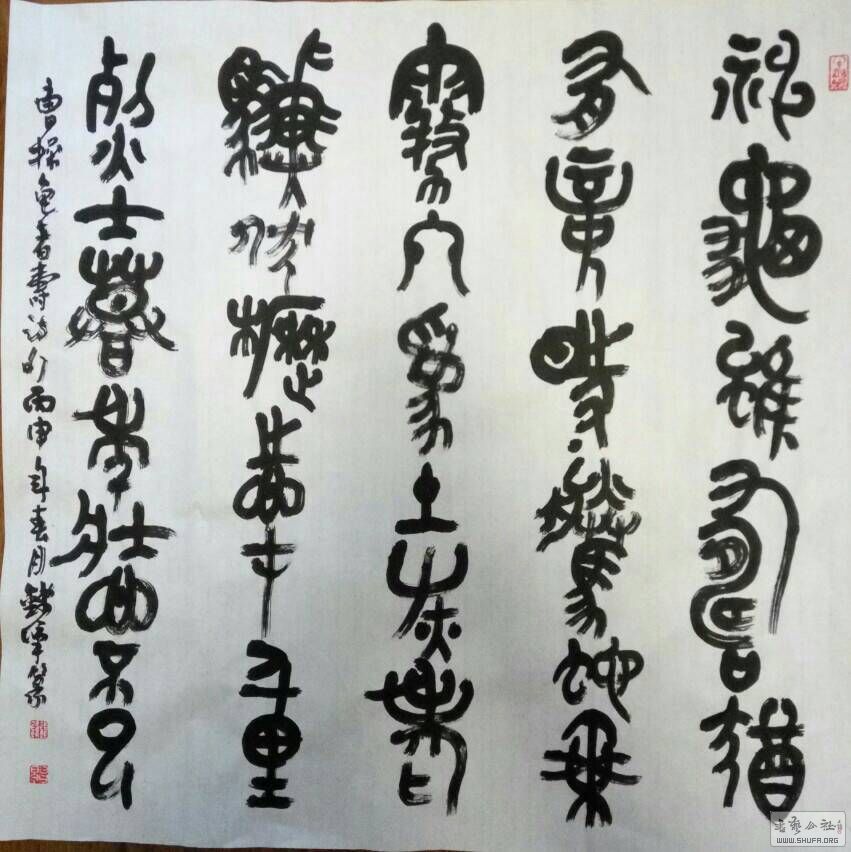 神龜雖壽猶
有竟時騰蛇乘
霧終為土灰老
驥伏櫪志在千里
烈士暮年壯心不已
曹操龟虽壽诗句丙申年春月篆
书艺公社
WWW.SHUFA.ORG